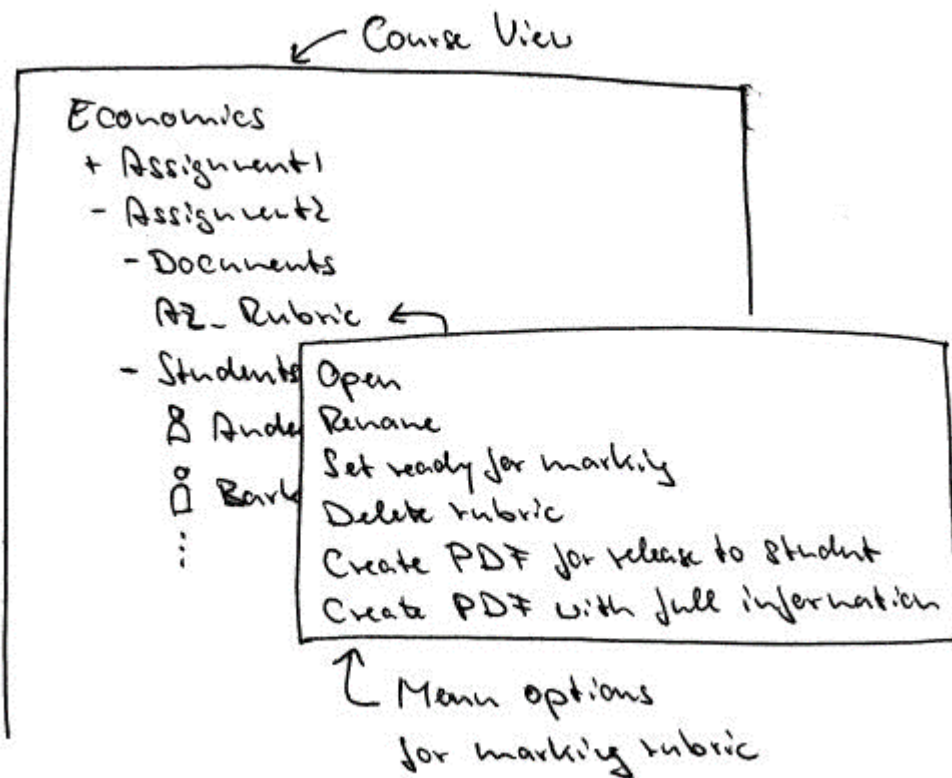 Course View
Economics
+ Assignment1
- Assignment2
- Documents
A2_Rubric
- Students
Ande
Bark
Open
Rename
Set ready for marking
Delete rubric
Create PDF for release to student
Create PDF with full information
Menu options
for marking rubric